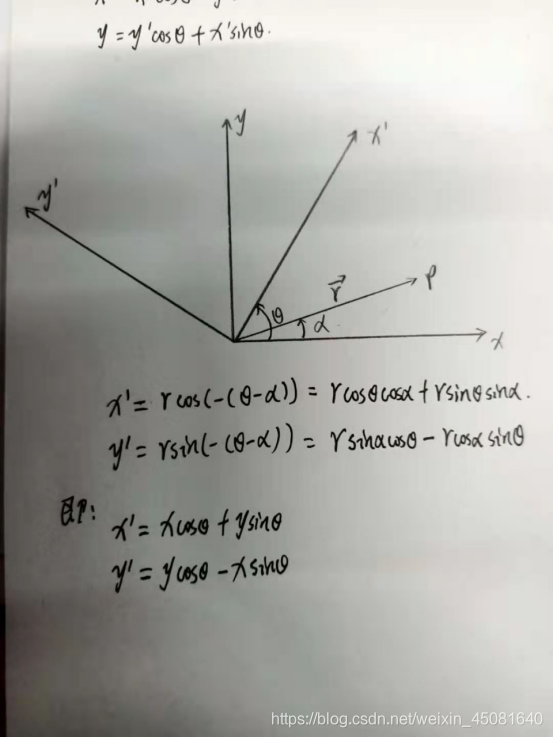 y = y'cosθ + x'sinθ.
y
x'
y'
r⃗
P
θ
α
x
x' = rcos(-(θ-α)) = rcosθcosα + rsinθsinα.
y' = rsin(-(θ-α)) = rsinαcosθ - rcosαsinθ
即:
x' = xcosθ + ysinθ
y' = ycosθ - xsinθ
https://blog.csdn.net/weixin_45081640